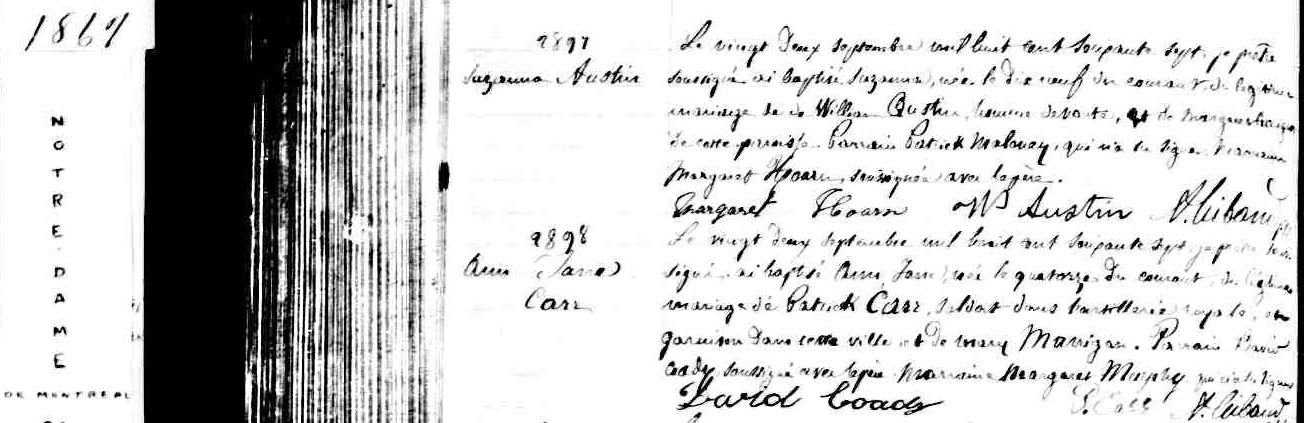 1867
NOTRE-DAME
DE MONTREAL
2897
Suzanna Austin
Le vingt deux septembre mil huit cent soixante sept, je prêtre
soussigné ai baptisé Suzanna, née le dix neuf du courant, du légitime
mariage de William Austin, homme de
de cette paroisse. Parrain Patrick Maloney, qui n'a su signer. Marraine
Margaret Hoarn, soussignée avec le père.
Margaret Hoarn Wm Austin
2898
Ann Jane
Carr
Le vingt deux septembre mil huit cent soixante sept, je prêtre sous
signé, ai baptisé Ann Jane, née le quatorze du courant, du légitime
mariage de Patrick Carr, soldat dans l'artillerie royale, en
garnison dans cette ville et de Mary Marrigan. Parrain David
Coady soussigné avec le père Marraine Margaret Murphy qui n'a su signer
David Coady P. Carr